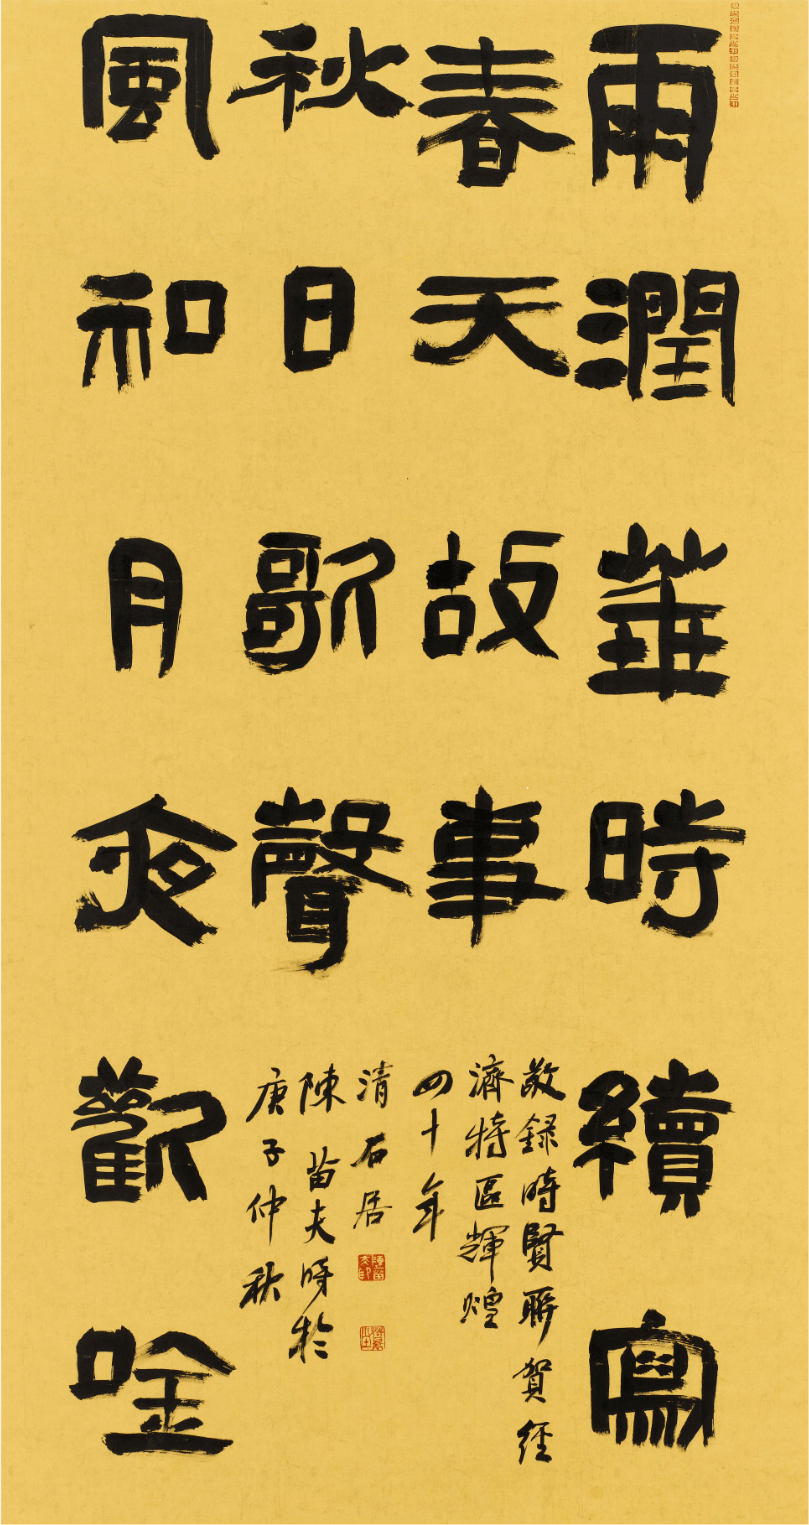 雨潤華時續寫
春天故事
風和月夜歡唫
秋日歌聲
敬録時賢聯賀經
濟特區輝煌
四十年
庚子仲秋
陳苗夫時於
清石居